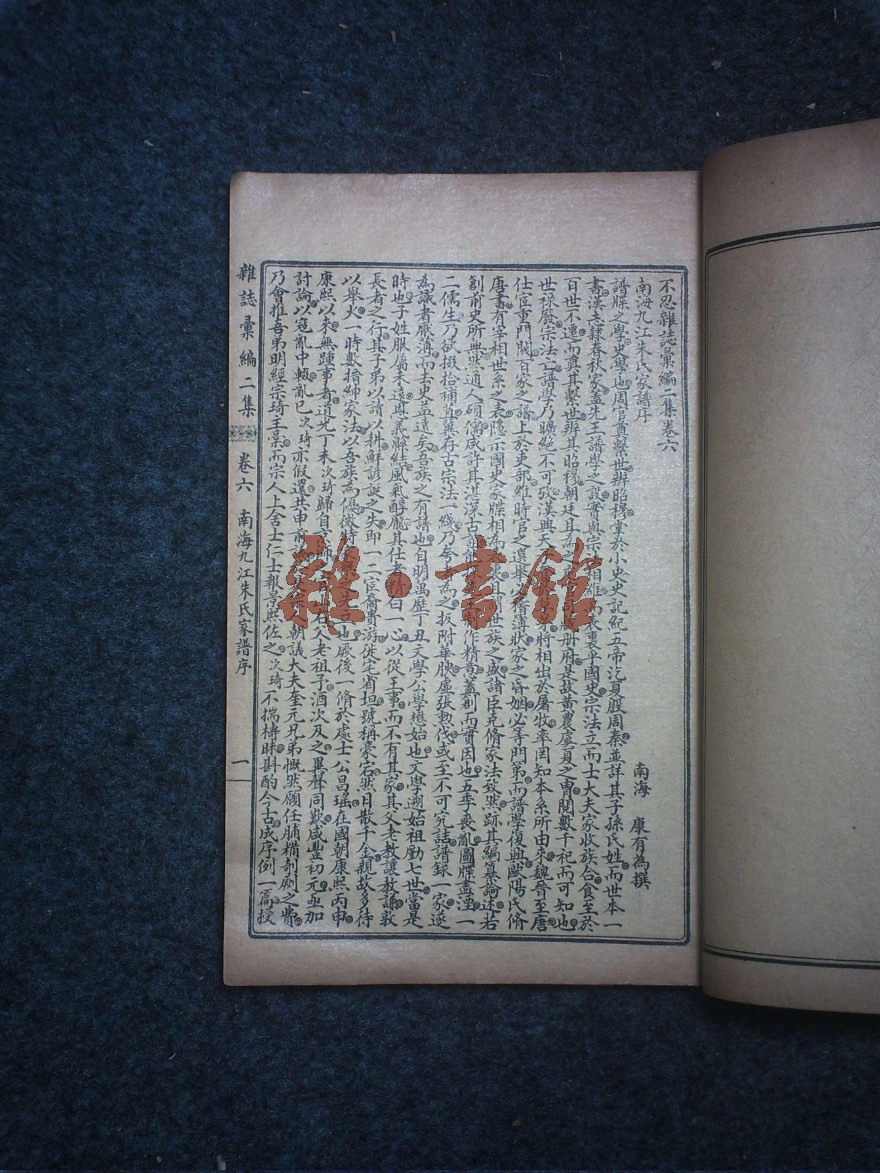 不忍雜誌彙編二集卷六
南海 康有為撰
南海九江朱氏家譜序
譜牒之學史學也周官奠繫世辨昭穆掌於小史史記紀五帝訖夏殷周秦並詳其子孫氏姓而世本一
書漢志隸春秋家蓋先王譜學之設實與宗法相維
裏乎國史宗法立而士大夫家收族合食至於
百世不遷而奠其繫世辨其昭穆朝廷且為之
冊府是故黃農虞夏之冑閱數千祀而可知也
世祿廢宗法亡譜學乃曠絕不可攷漢興天
將相出於屠牧率罔知本系所由來魏晉至唐
仕宦重門閥百家之譜上於吏部維時官之選舉必稽薄狀家之昏姻必等門第而譜學復興歐陽氏脩
唐書有宰相世系之表隱示國史家牒相為
世族之盛諸臣克脩家法致然跡其編纂論述若
創前史所無與通人碩儒咸許其湛深古
作精意蓋創而實因也五季喪亂圖牒盡湮一
二儒生乃欲掇拾補苴冀存古宗法一綫乃夸
為之扳附華腴虛張勳伐或至不可究詰譜錄一家遂
為識者厭薄而去史益遠矣吾族之有譜也自明萬歷丁丑文學公學懋始也文學遡始祖劤七世當是
時也子姓服屬未遠恩義維結風氣醇龐其仕者精白一心以從王事而不有其家其父老教讓教謙敦
長者之行其子弟以讀以耕鮮諺誕之失即一二宦裔貴游徙宅省垣號稱豪宕然日散千金親故多待
以舉火一時數搢紳家法以吾族為優儗
也厥後一脩於處士公昌瑤在國朝康熙丙申
康熙以來無踵事者道光丁未次琦歸自京師
父老祖子酒次及之異聲同歎咸豐初元亟加
討論以寇亂中輟亂已次琦亦假還共申前
朝議大夫奎元兄弟慨然願任脯糒剞劂之費
乃會推吾弟明經宗琦王景而宗人上舍士仁士報景熙佐之次琦不揣檮昧斟酌今古成序例一篇授
雜誌彙編二集 卷六 南海九江朱氏家譜序 一
雜·書館